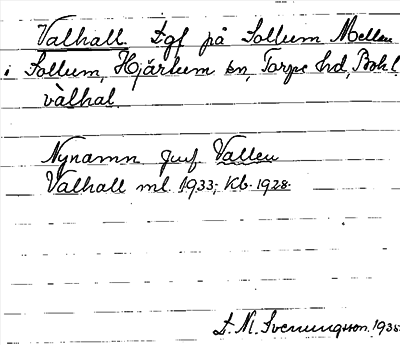 Valhall. Lgf på Sollum Mellan
i Sollum, Hjärtum sn, Torpe hd, Bohl.
valhal.
Nynamn. Jmf. Vallen
Valhall ml. 1933; Kb. 1928.
D. N. Svenungsson. 1935